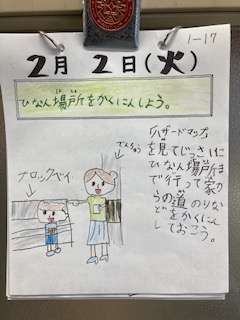 1-17
2月2日(火)
ひなん場所をかくにんしよう。
ハザードマップ
を見てじっさいに
ひなん場所ま
で行って家か
らの道のりな
どをかくにん
しておこう。
でんちゅう
ブロックベイ